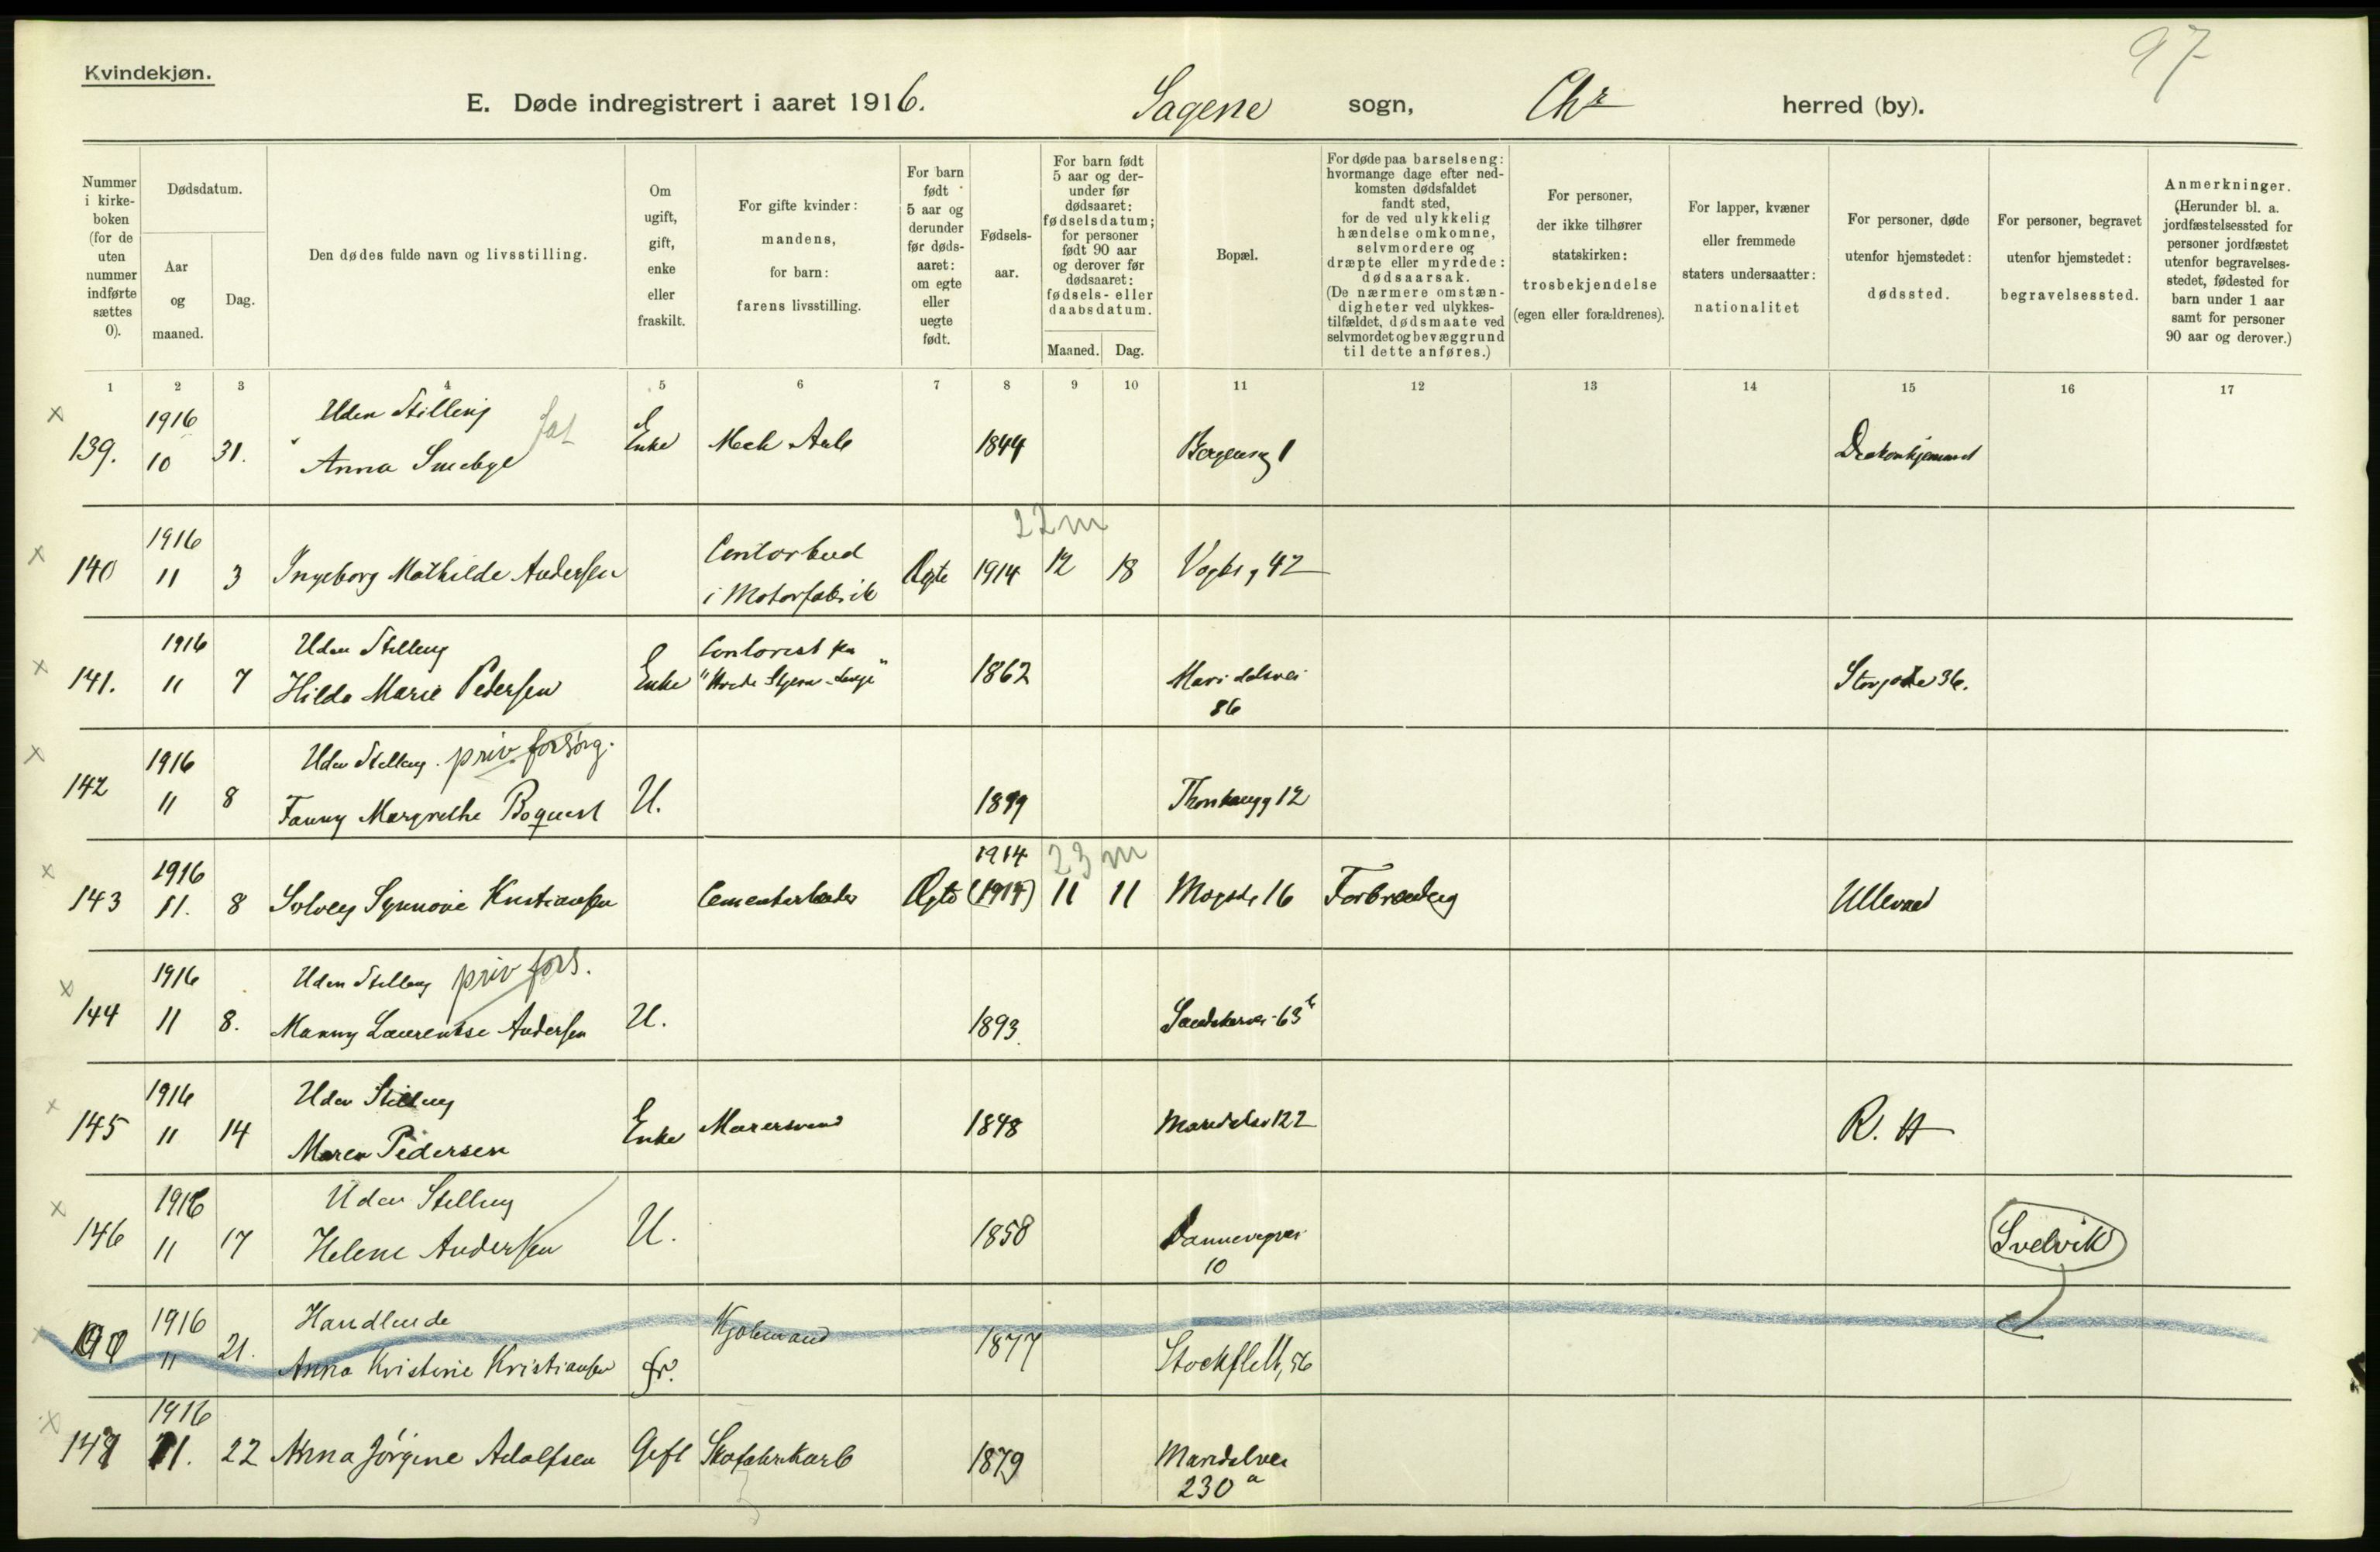 97
Kvindekjøn.
E. Døde indregistrert i aaret 1916. Sagene sogn, Chr herred (by).
Nummer i kirke-boken (for de uten nummer indførte sættes 0).
Dødsdatum.
Aar og maaned.
Dag.
Den dødes fulde navn og livsstilling.
Om ugift, gift, enke eller fraskilt.
For gifte kvinder: mandens, for barn: farens livsstilling.
For barn født 5 aar og derunder før døds-aaret: om egte eller uegte født.
Fødsels-aar.
For barn født 5 aar og der-under før dødsaaret: fødselsdatum; for personer født 90 aar og derover før dødsaaret: fødsels- eller daabsdatum.
Maaned. Dag.
Bopæl.
For døde paa barselseng: hvormange dage efter ned-komsten dødsfaldet fandt sted, for de ved ulykkelig hændelse omkomne, selvmordere og dræpte eller myrdede: dødsaarsak. (De nærmere omstæn-digheter ved ulykkes-tilfældet, dødsmaate ved selvmordet og bevæggrund til dette anføres.)
For personer, der ikke tilhører statskirken: trosbekjendelse (egen eller forældrenes).
For lapper, kvæner eller fremmede staters undersaatter: nationalitet
For personer, døde utenfor hjemstedet: dødssted.
For personer, begravet utenfor hjemstedet: begravelsessted.
Anmerkninger. (Herunder bl. a. jordfæstelsessted for personer jordfæstet utenfor begravelses-stedet, fødested for barn under 1 aar samt for personer 90 aar og derover.)
1 2 3 4 5 6 7 8 9 10 11 12 13 14 15 16 17
x 1916 Uden Stilling
139. 10 31. Anna Smebye Enke Mek Arb 1844 Bergensg 1 Diakonhjemmet
22 m
x 1916 Contorbud
140 11 3 Ingeborg Mathilde Andersen i Motorfabrik Ægte 1914 12 18 Vogtsg 42
x 1916 Uden Stilling Contorist
141. 11 7 Hilda Marie Pedersen Enke 1862 Maridalsvei 86 Storgate 36.
x 1916 Uden Stilling. priv forsørg.
142 11 8 Fanny Margrethe Boquist U. 1899 12
1914 23 m
x 1916
143 11. 8 Solveig Synnøve Kristiansen Cementarbeider Ægte (1914) 11 11 16 Forbrænding Ullevaal
x 1916 Uden Stilling priv fors.
144 11 8. Manny Laurentse Andersen U. 1893. Sandakervei 63 b
x 1916 Uden Stilling
145 11 14 Maren Pedersen Enke Murersvend 1848 Maridalsv 122 R. H
x 1916 Uden Stilling
146 11 17 Helene Andersen U. 1858 Dannevigsvei 10 Svelvik
x 1916 Handlende Kjøbmand
11 21. Anna Kristine Kristiansen fr. 1877 Stockflett, 56
x 1916
147 11. 22 Anna Jörgine Adolfsen Gift Skofabrikarb 1879 Maridalvei 230 a